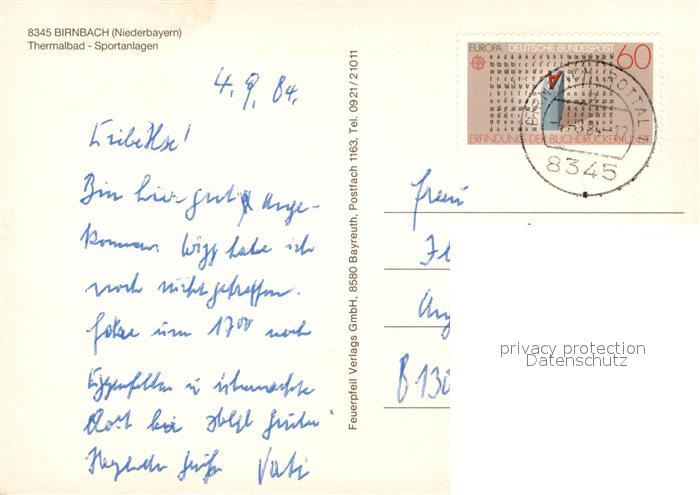 8345 BIRNBACH (Niederbayern)
Thermalbad - Sportanlagen
4. 9. 84.
Liebe Ilse!
Bin hier gut ange-
kommen. Wigg habe ich
noch nicht getroffen.
fahre um 17⁰⁰ nach
Eggenfelden u übernachte
dort bei
Herzliche Grüße Vati
Feuerpfeil Verlags GmbH, 8580 Bayreuth, Postfach 1163, Tel. 0921/21011
EUROPA DEUTSCHE BUNDESPOST 60
ERFINDUNG DER BUCHDRUCKERKUNST
8345
Frau
B 130
privacy protection
Datenschutz